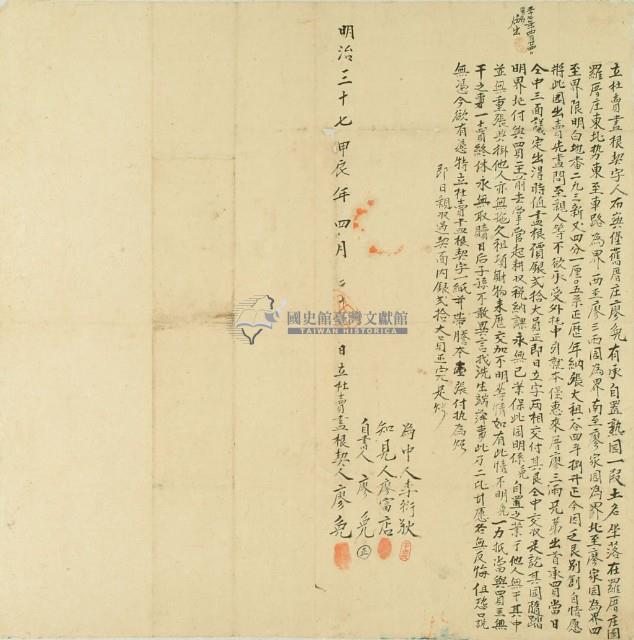 立杜賣盡根契字人石與僅舊厝庄廖兔有承自置熟園一段土名坐落在羅厝庄園
羅厝庄東北勢東至車路為界西至廖三而園為界南至廖家園為界北至廖家園為界四
至界限明白地番二九三新丈四分一厘○五糸正歷年納張大租谷四斗捌升正今因乏艮別創自情愿
將此園出賣先盡問至親人等不欲承受外托中引就本僅惠來厝廖三而兄弟出首承買當日
仝中三面議定出得時值盡根價銀弍拾大員正即日立字兩相交付其艮仝中交收足訖其園隨踏
明界址付與買主前去掌管起耕收稅納課永無己業保此園明係兔自置之業于他人無干其中
並無重張典掛他人亦無拖欠租項財物來歷交加不明等情如有此情不明兔一力抵當與買主無
干之事一賣終休永無取贖日后子孫不敢異言找洗生端滋事此乃二比甘愿各無反悔但恐口說
無憑今欲有憑特立杜賣盡根契字一紙并帶謄本壹張付执為炤
即日親收過契面内銀弍拾大員正完足炤
為中人李衍狄
知見人廖富店
自書人廖兔
明治三十七甲辰年四月 日立杜賣盡根契人廖兔
國史館臺灣文獻館
TAIWAN HISTORICA